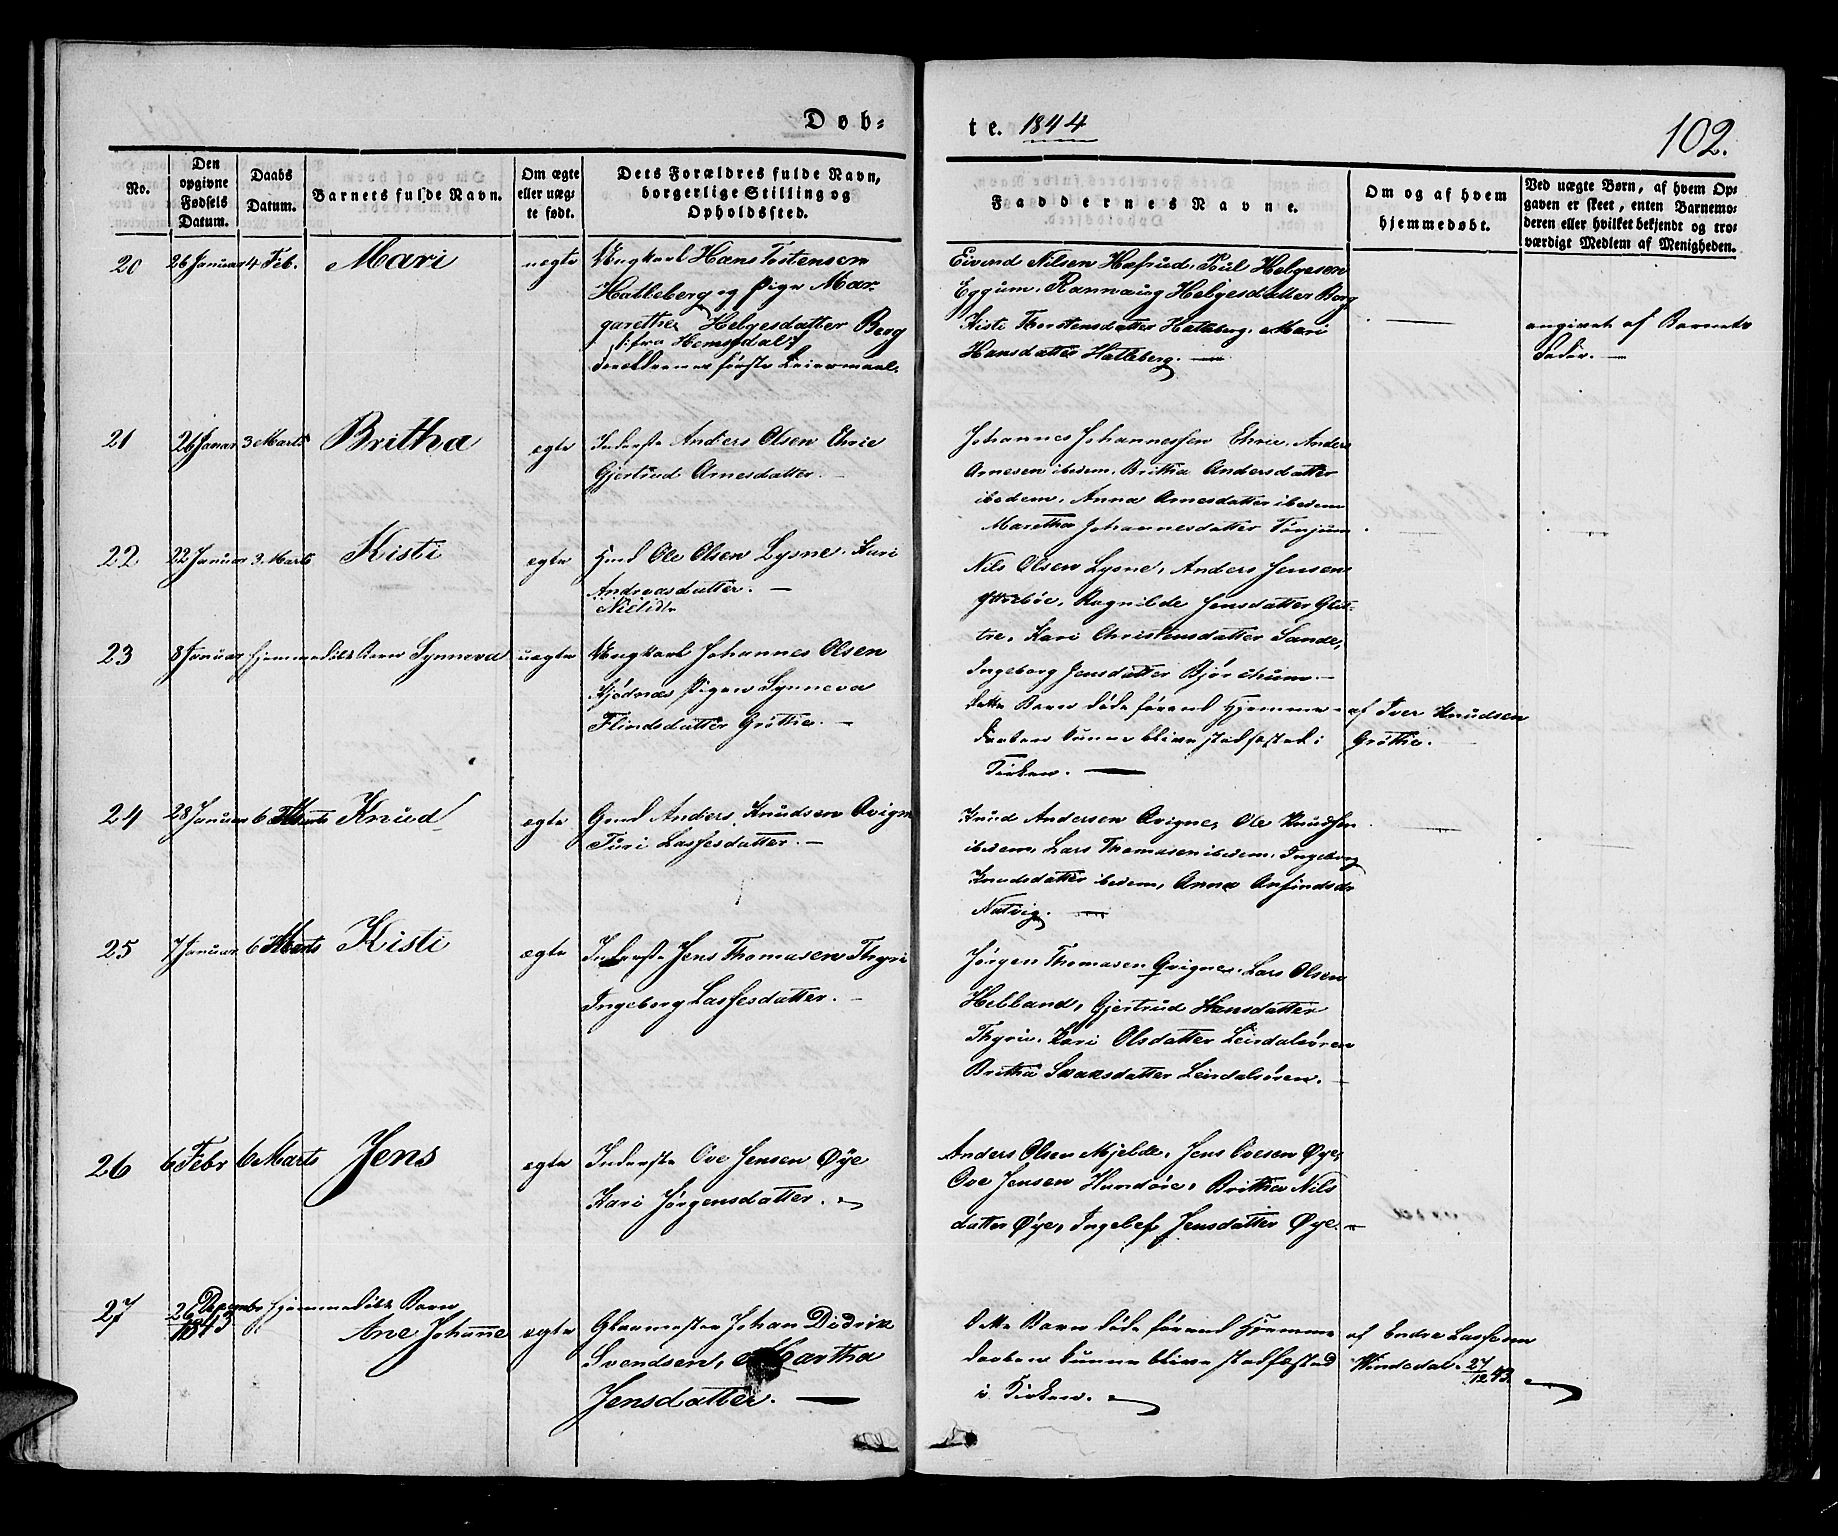 Døb-
te. 1844
102.
No.
Den opgivne Fødsels Datum.
Daabs Datum.
Barnets fulde Navn.
Om ægte eller uægte født.
Dets Forældres fulde Navn, borgerlige Stilling og Opholdssted.
Faddernes Navne.
Om og af hvem hjemmedøbt.
Ved uægte Børn, af hvem Opgaven er skeet, enten Barnemoderen eller hvilket bekjendt og troværdigt Medlem af Menigheden.
20 26 Januar 4 Feb. Mari uægte
Ungkarl Hans Tostensen
Halleberg og Pige Mar-
garethe Helgesdatter Berg
fra Hemsedal
Forældrenes første Leiermaal.
Eivend Nilsen Hæfrud, Poul Helgesen
Eggum, Rannaug Helgesdatter Borg
Kisti Thorstensdatter Halleberg, Mari
Hansdatter Halleberg.
angivet af Barnets
Fader.
21 26 Januar 3 Marts Britha ægte
Inderste Anders Olsen Ehrie
Gjertrud Arnesdatter.
Johannes Johannessen Ehrie, Anders
Arnesen ibidem, Britha Andersdatter
ibidem, Anna Arnesdatter ibidem
Maretha Johannesdatter Tønjum
22 22 Januar 3 Marts Kisti ægte
Gmd Ole Olsen Lysne, Kari
Andreasdatter.
Nils Olsen Lysne, Anders Jensen
Yttrebøe, Ragnilde Jensdatter Glei-
tre, Kari Christensdatter Sande,
Ingeborg Jensdatter Bjørchum.
23 8 Januar hjemmedøbt Barn Synneva uægte
Ungkarl Johannes Olsen
Kjødnæs Pigen Synneva
Flindsdatter Grøthe.
dette Barn døde førend Hjemme-
daaben kunne blive stadfæstet i
Kirken.
af Iver Knudsen
Grøthe.
24 28 Januar 6 Marts Knud ægte
Gmd Anders Knudsen Qvigne
Turi Lassesdatter.
Knud Andersen Qvigne, Ole Knudsen
ibidem, Lars Thomasen ibidem, Ingeborg
Knudsdatter ibidem, Anna Anfindsdr
Natvig.
25 7 Januar 6 Marts Kisti ægte
Inderste Jens Thomasen Thyri
Ingeborg Lassesdatter.
Jørgen Thomasen Qvigne, Lars Olsen
Helland, Gjertrud Hansdatter
Thyri, Kari Olsdatter Leirdalsøren
Britha Svansdatter Leirdalsøren.
26 6 Febr 6 Marts Jens ægte
Inderste Ove Jensen Øye
Kari Jørgensdatter.
Anders Olsen Mjelde, Jens Ovesen Øye,
Ove Jensen Hundøre, Britha Nils
datter Øye, Ingelef Jensdatter Øye.
27 26 Decembr 1843 hjemmedøbt Barn
Ane Johanne ægte
Glarmester Johan Didrik
Svendsen, Martha
Jensdatter.
dette Barn døde førend Hjemme
daaben kunne blive stadfæstet
i Kirken.
af Endre Lassesen
Windedal 27/12 43.